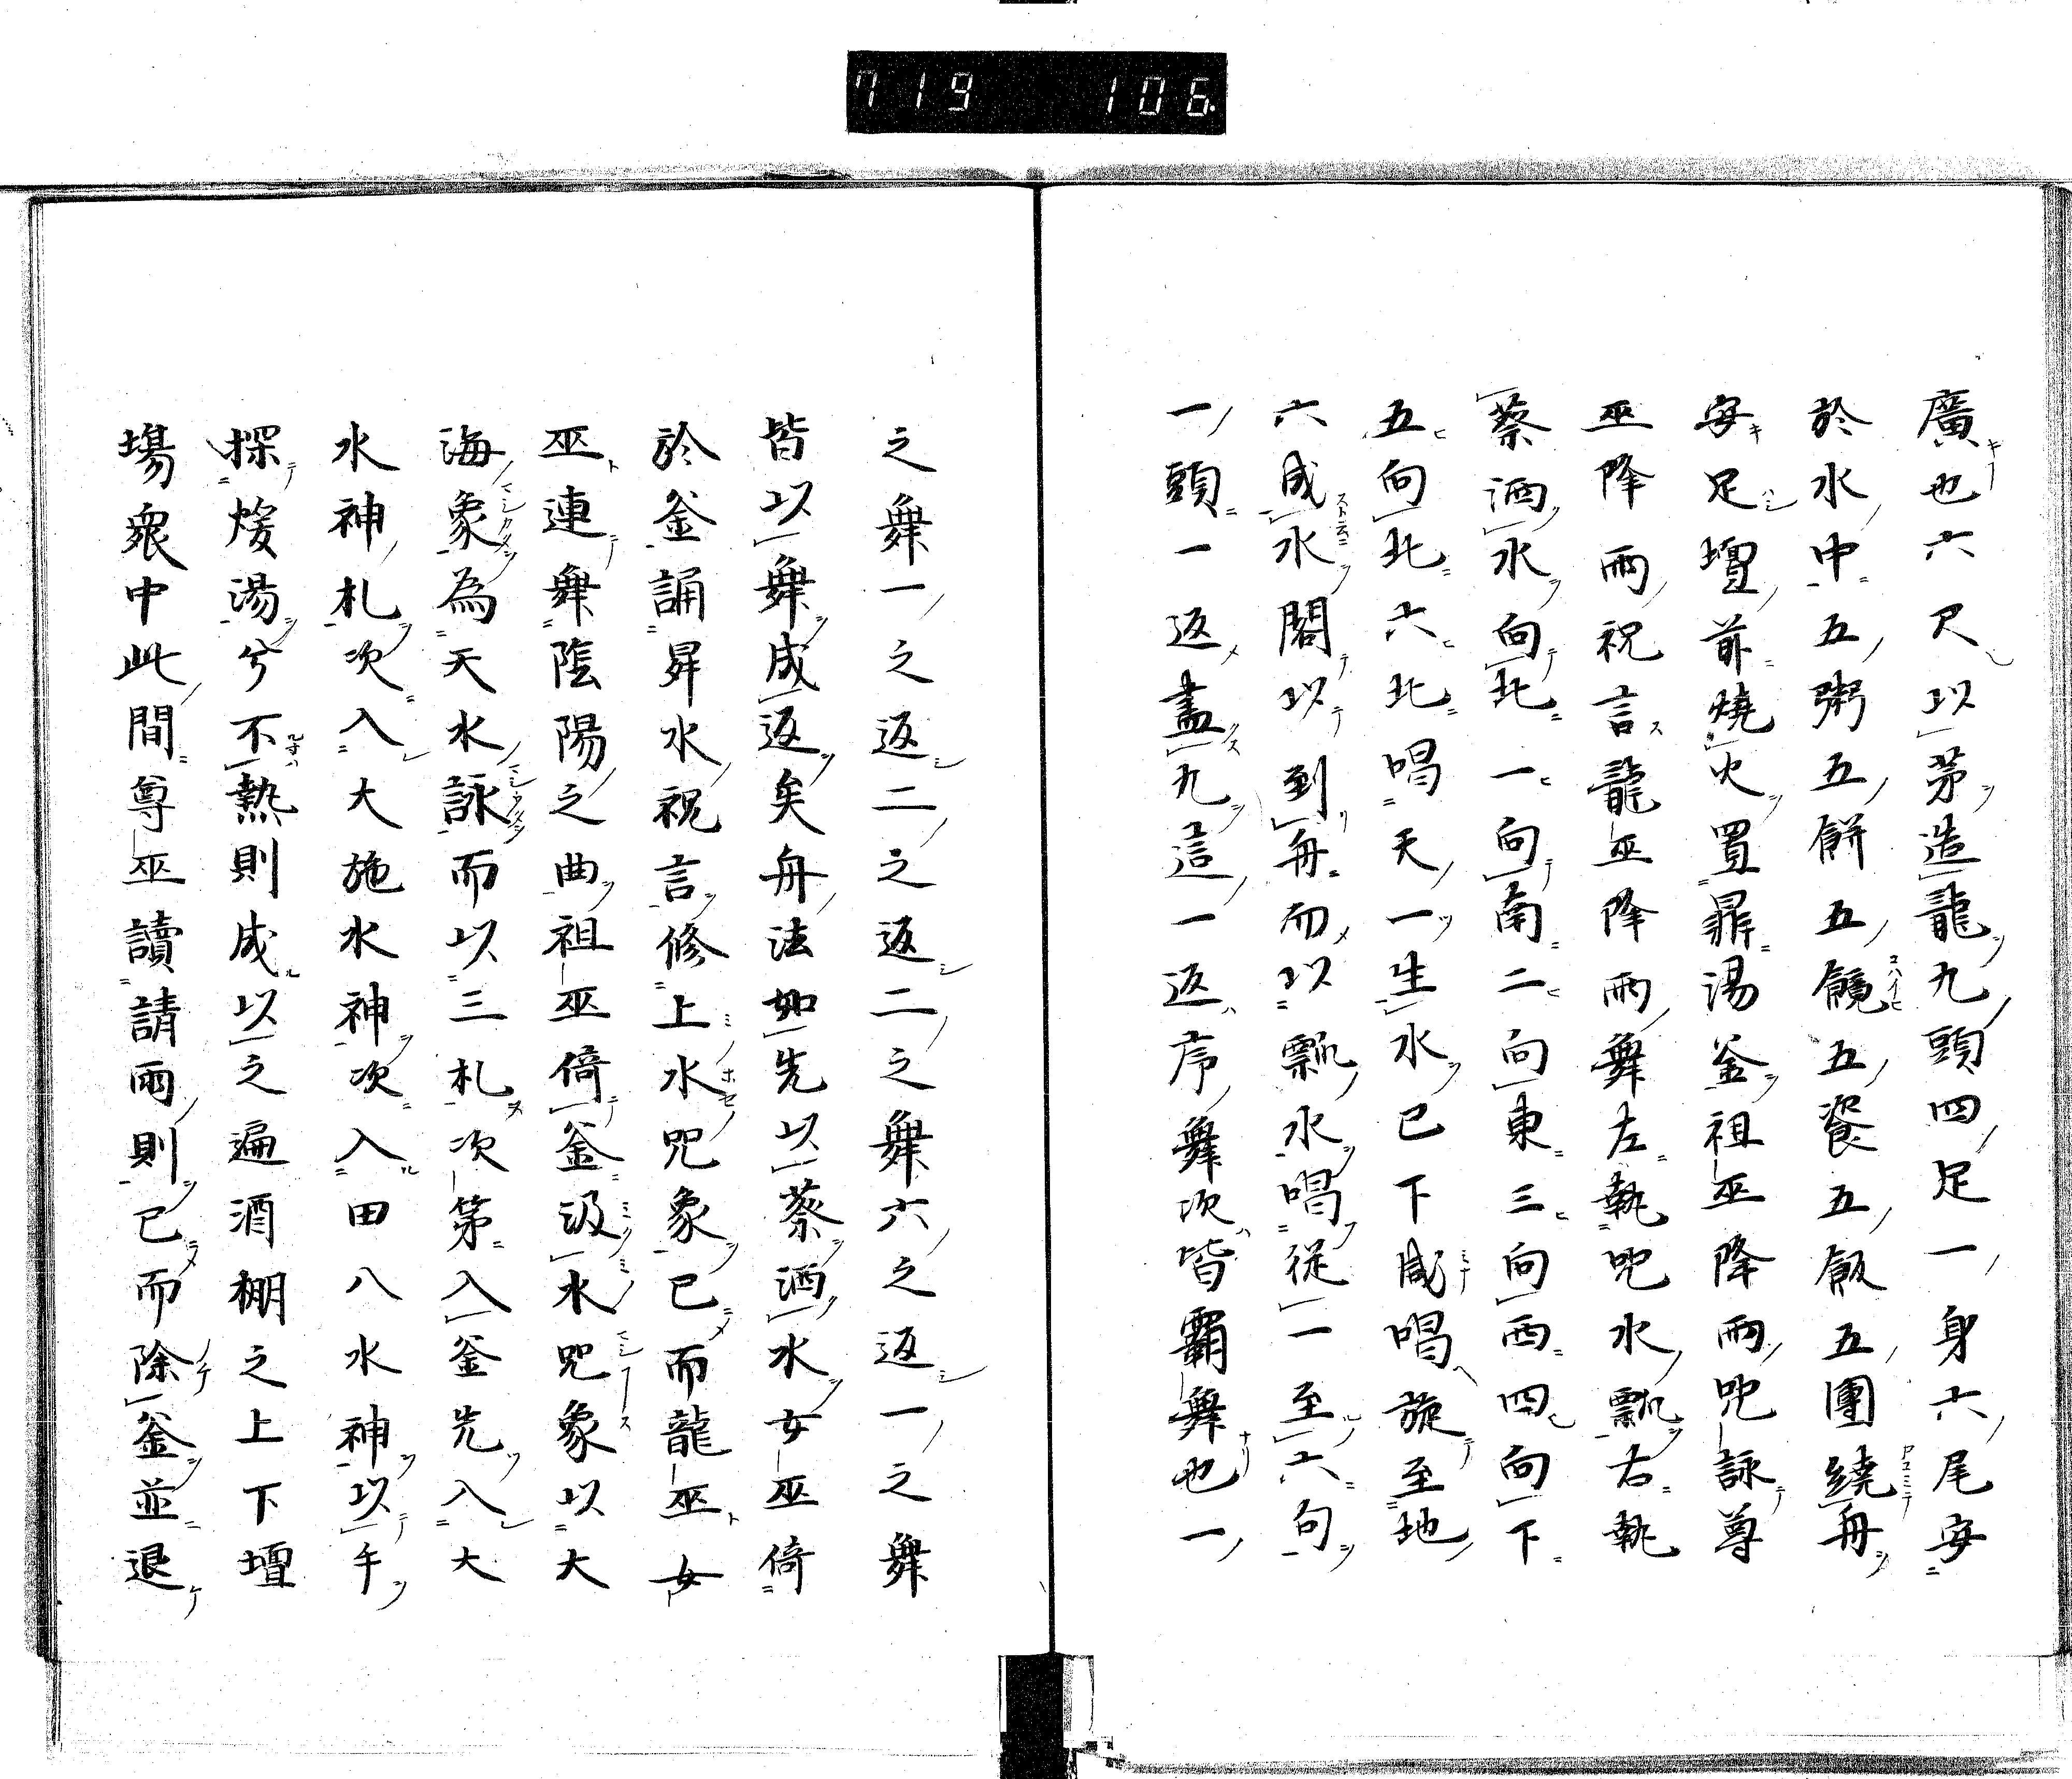 719 106
廣也六尺以茅造龍九頭四足一身六尾安
於水中五粥五餅五饒五餈五飯五團繞舟
安足壇前燒火置鼎湯釜祖巫降雨咒詠尊
巫降雨祝言龍巫降雨舞左執咒水瓢右執
蔡洒水向北一向南二向東三向西四向下
五向北六北唱天一生水已下咸唱旋至地
六成水閣以到舟而以瓢水唱從一至六句
一頭一返盡九這一返序舞次皆霸舞也一
之舞一之返二之返二之舞六之返一之舞
皆以舞成返矣舟法如先以蔡洒水女巫倚
於釜誦昇水祝言修上水咒象已而龍巫女
巫連舞陰陽之曲祖巫倚釜汲水咒象以大
海象為天水詠而以三札次第入釜先入大
水神札次入大施水神次入田八水神以手
探煖湯兮不熱則成以之遍酒棚之上下壇
場衆中此間尊巫讀請雨則已而除釜並退